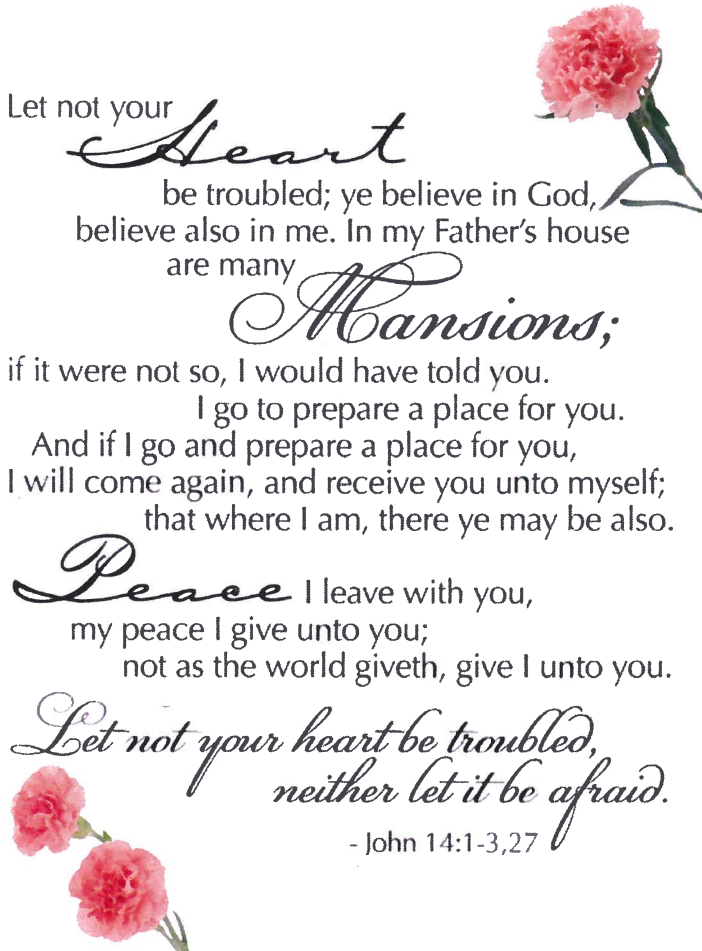 Let not your
Heart
be troubled; ye believe in God,
believe also in me. In my Father's house
are many
Mansions;
if it were not so, I would have told you.
I go to prepare a place for you.
And if I go and prepare a place for you,
I will come again, and receive you unto myself;
that where I am, there ye may be also.
Peace I leave with you,
my peace I give unto you;
not as the world giveth, give I unto you.
Let not your heart be troubled,
neither let it be afraid.
- John 14:1-3,27